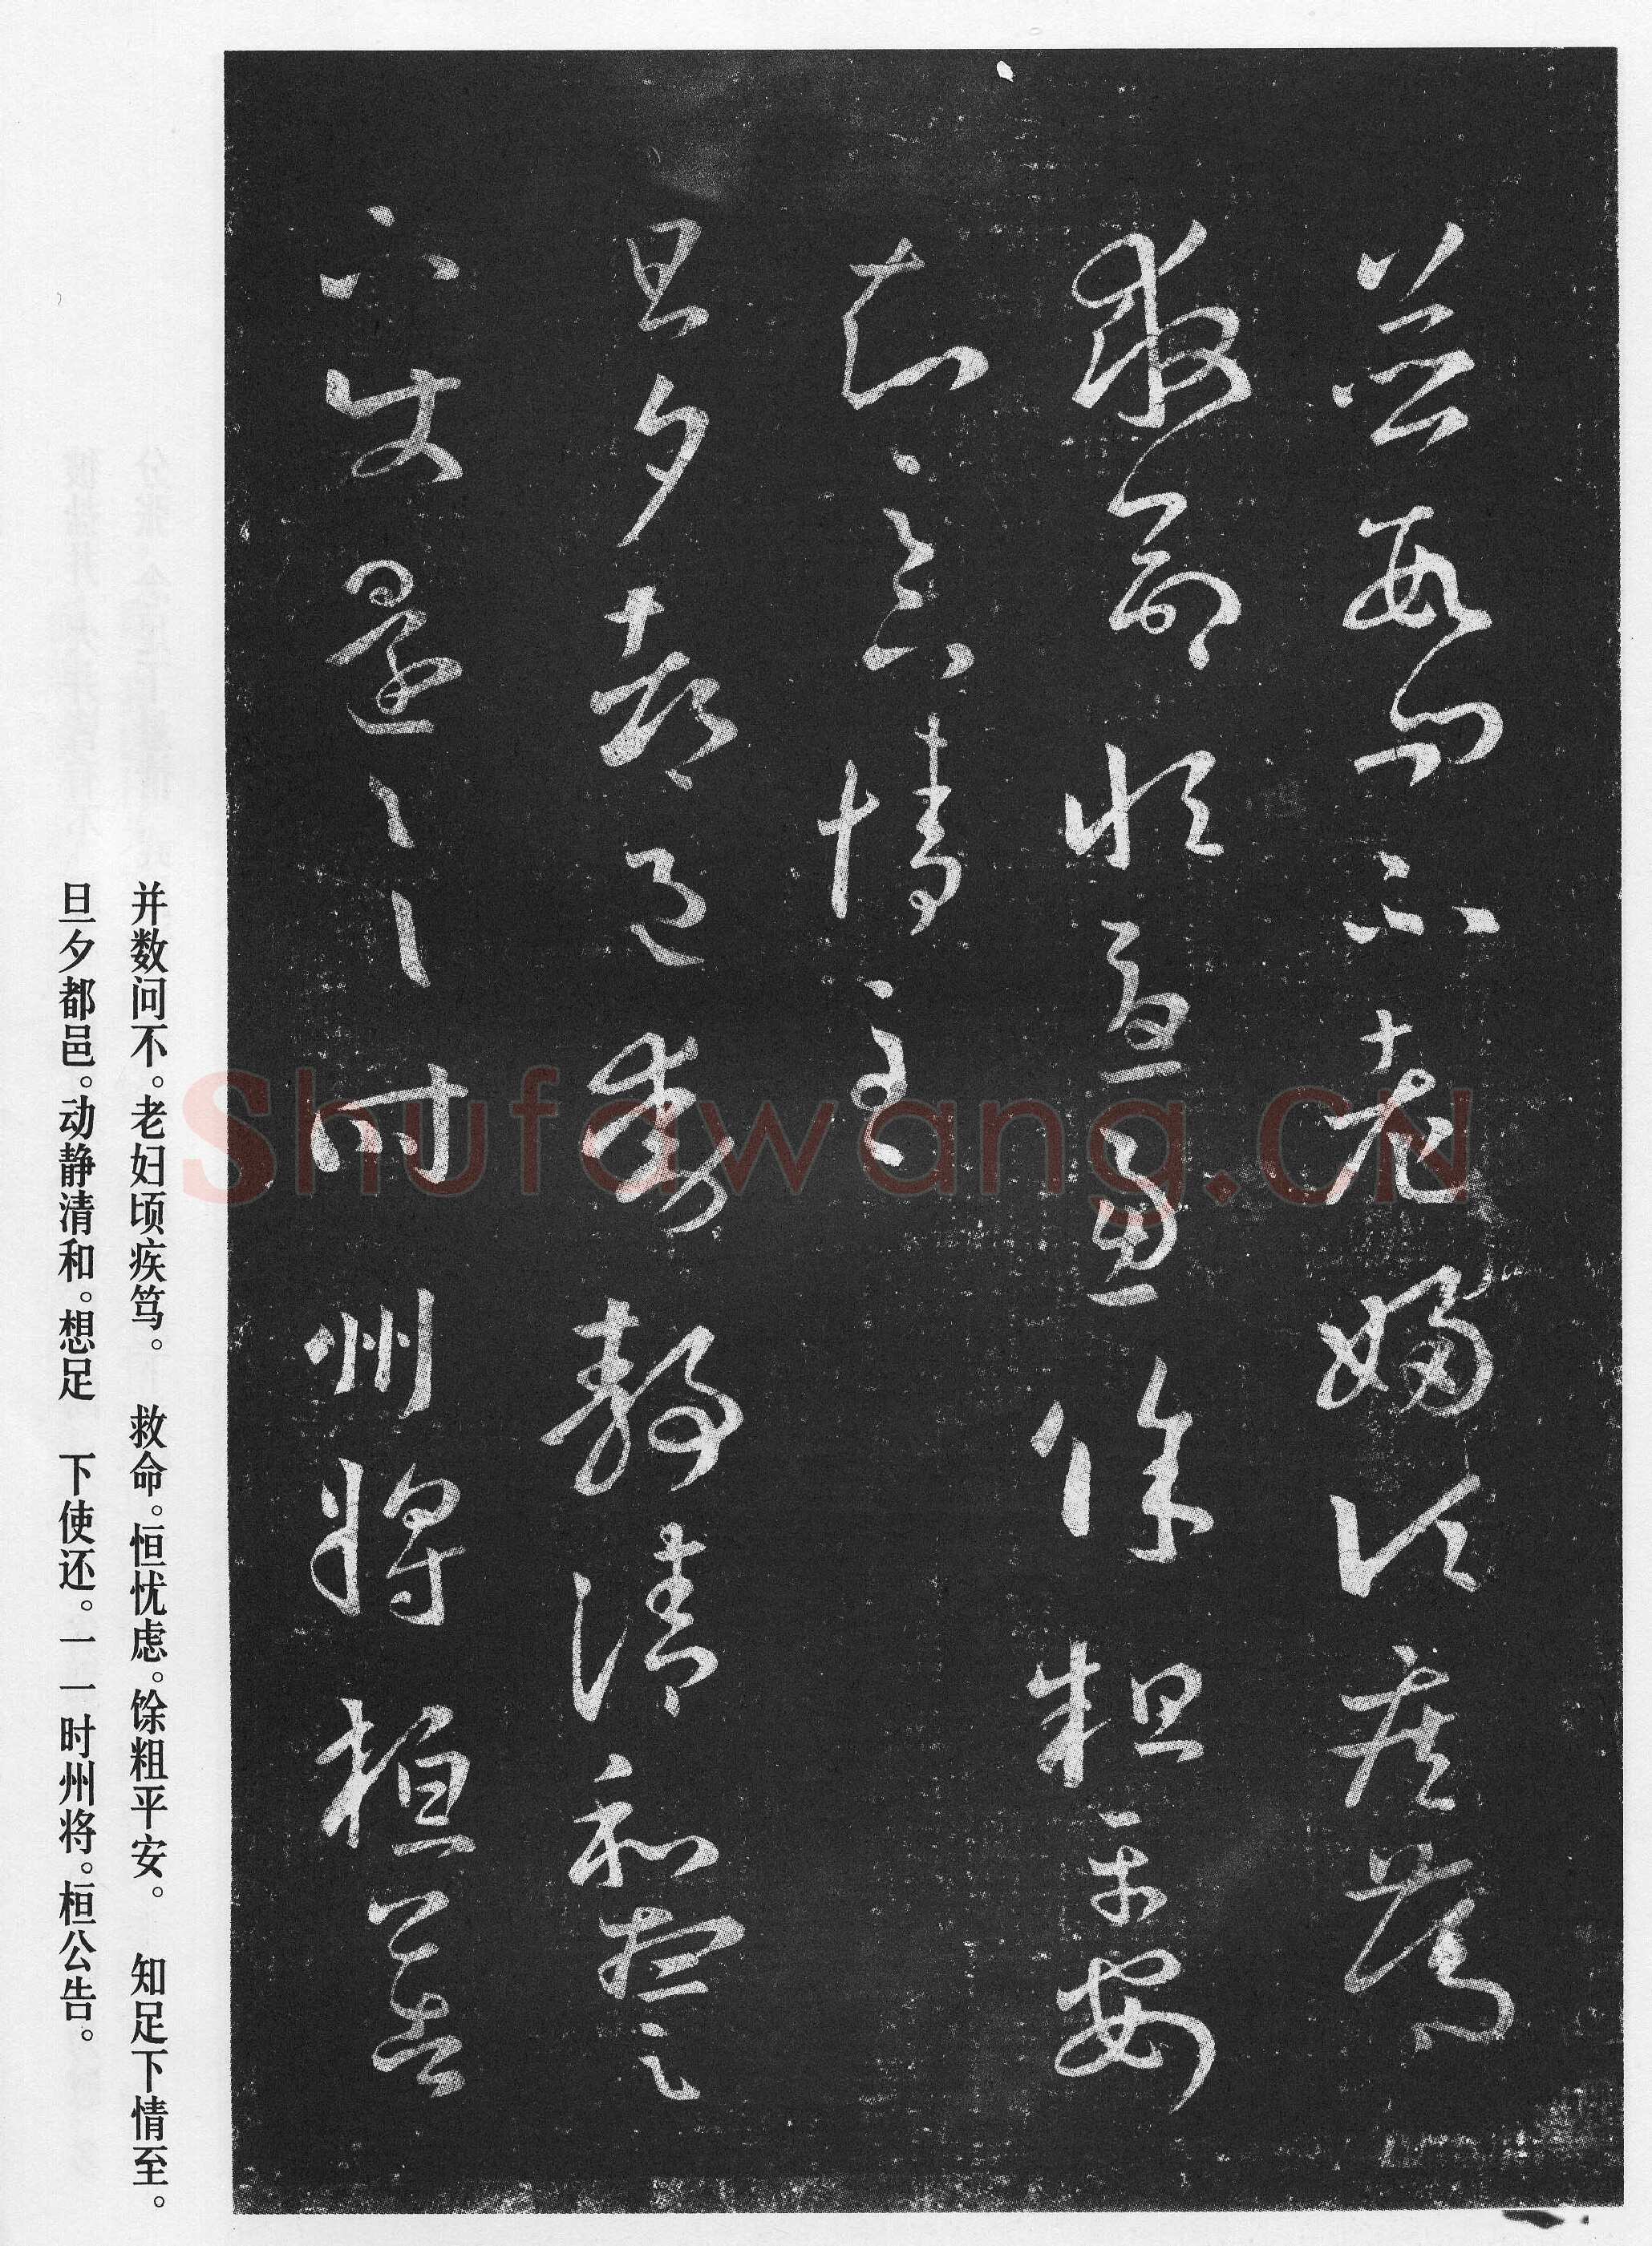 並數問不老婦頃疾篤
救命恒憂慮餘粗平安
知足下情至
旦夕都邑動靜清和想足
下使還一一時州將桓公告
并数问不。老妇顷疾笃。 救命。恒忧虑。馀粗平安。 知足下情至。
旦夕都邑。动静清和。想足 下使还。一一时州将。桓公告。
Shufawang.CN